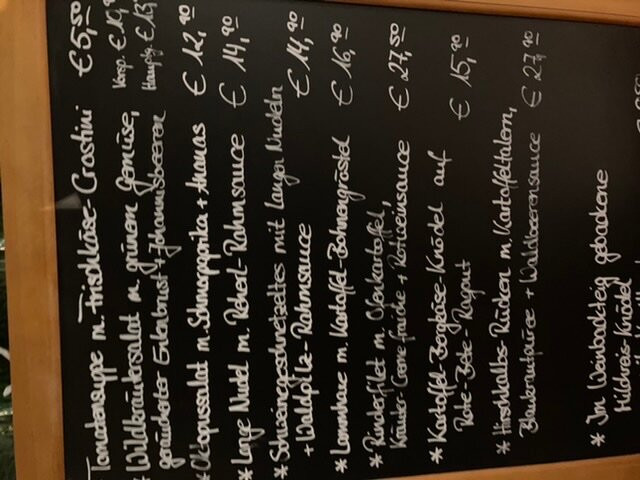 Tomatensuppe m. Frischkäse-Crostini € 5,50
* Wildkräutersalat m. grünem Gemüse, Vorsp. €
geräucherter Entenbrust + Johannisbeeren Hauptg. € 13
* Oktopussalat m. Schmorpaprika + Ananas € 12,90
* Lange Nudel m. Rahmsauce € 14,90
* Schweinegeschnetzeltes mit langen Nudeln
+ Waldpilz-Rahmsauce € 14,90
* Lammhaxe m. Kartoffel-Bohnengröstel € 16,90
* Rinderfilet m. Ofenkartoffel,
Kräuter-Creme fraiche + Portweinsauce € 27,50
* Kartoffel-Bergkäse-Knödel auf
Rote-Bete-Ragout € 15,90
* Hirschkalbs-Rücken m. Kartoffeltalern,
Blaukrautpüree + Waldbeerensauce € 27,90
* Im Weinbackteig gebackene
Milchreis-Knödel